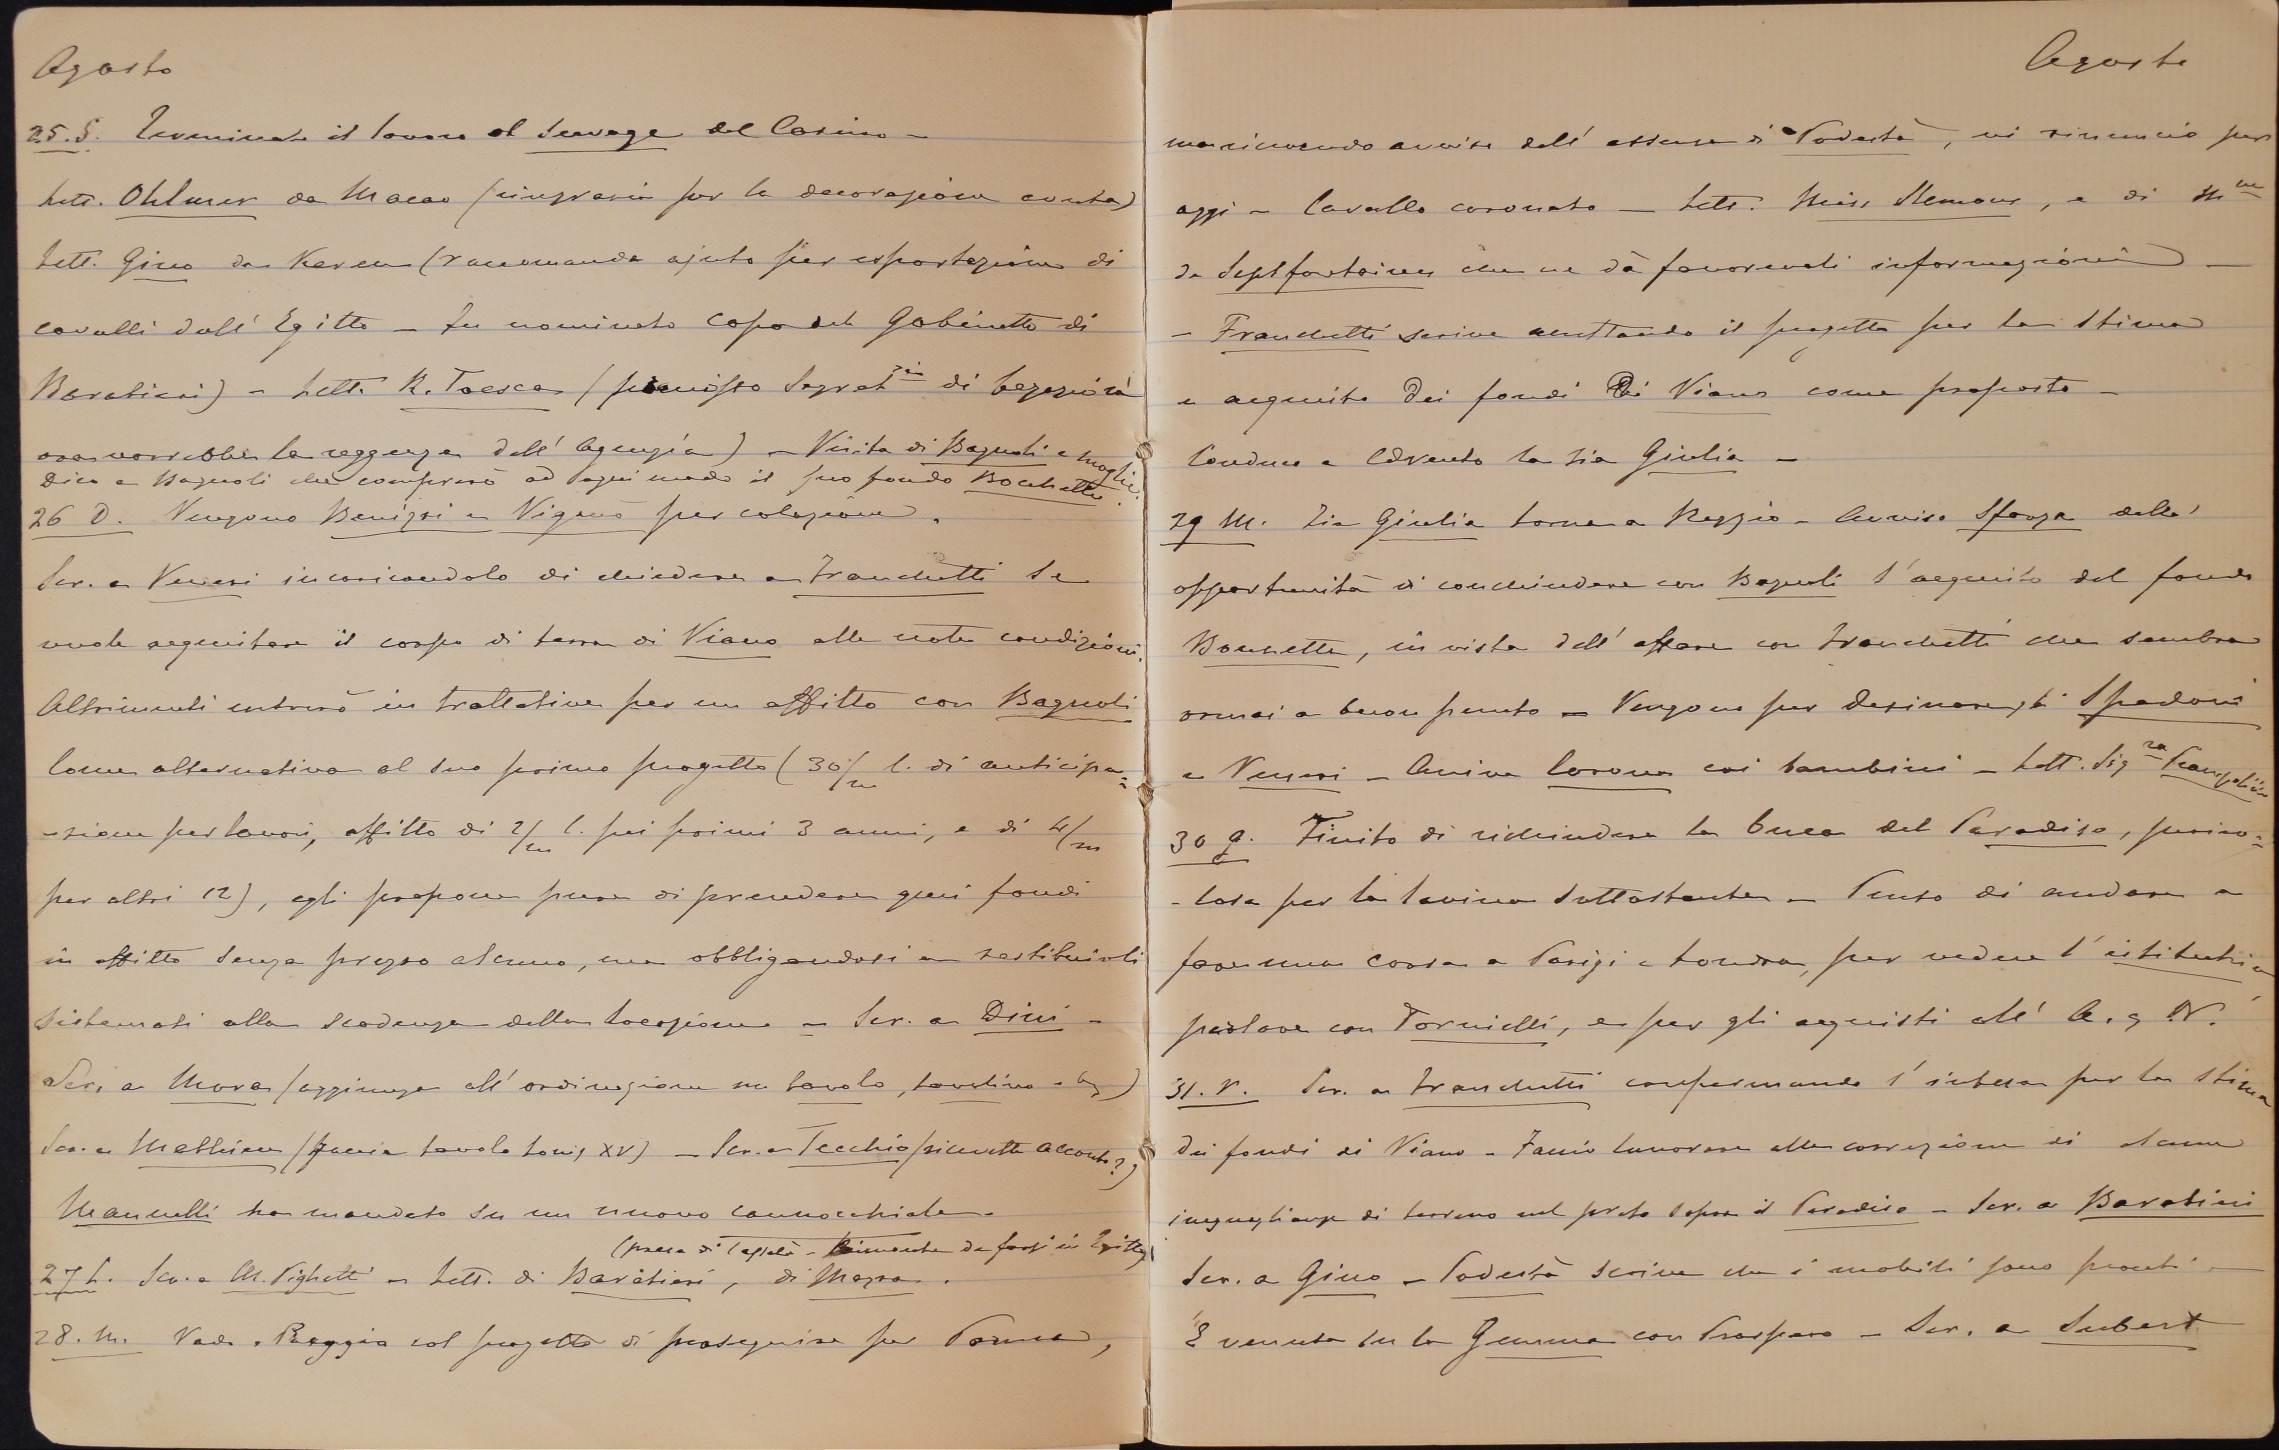 Agosto
25. S. Terminato il lavoro al Sewage del Casino -
Lett. Ohlmer da Macao (ringrazia per la decorazione avuta)
Lett. Gino da Keren (raccomanda ajuto per esportazione di
cavalli dall' Egitto - fu nominato Capo del Gabinetto di
Baratieri) - Lett. R. Toesca (promosso Segret.rio di Legazione
ora vorrebbe la reggenza dell' Agenzia) - Visita di Bagnoli e moglie.
Dico a Bagnoli che comprerò ad ogni modo il suo fondo Bocchette.
26 D. Vengono Benizzi e Viganò per colazione.
Scr. a Veneri incaricandolo di chiedere a Franchetti se
vuole acquistare il corpo di terra di Viano alle note condizioni.
Altrimenti entrerò in trattative per un affitto con Bagnoli
Come alternativa al suo primo progetto (30/m l. di anticipa=
=zione per lavori, affitto di 2/m l. pei primi 3 anni, e di 4/m
per altri 12), egli propone pure di prendere quei fondi
in affitto senza prezzo alcuno, ma obbligandosi a restituirli
sistemati alla scadenza della locazione - Scr. a Dini -
Scr. a Mora (aggiunga all' ordinazione un tavolo, tavolino)
Scr. a Mathieu (faccia tavolo Louis XV) - Scr. a Tecchio (ricevette acconto?)
Mannelli ha mandato su un nuovo cannocchiale -
(presa di Cassala - da farsi in Egitto)
27 L. Scr. a M. Vighetti - Lett. di Baratieri, di Mazza.
28. M. Vado a Reggio col progetto di proseguire per Parma,
Agosto
ma ricevendo avviso dell' assenza di Podestà, vi rinuncio per
oggi - Cavallo coronato - Lett. Miss Slemons, e di Mme
de Septfontaines che ne dà favorevoli informazioni -
- Franchetti scrive accettando il progetto per la stima
e acquisto dei fondi di Viano come proposto -
Conduco a Albvento la zia Giulia -
29 M. Zia Giulia torna a Reggio - Avviso Sforza dell'
opportunità di conchiudere con Bagnoli l'acquisto del fondo
Bocchette, in vista dell' affare con Franchetti che sembra
ormai a buon punto - Vengono per desinare gli Spadoni
e Veneri - Arriva Corona coi bambini - Lett. Sigra
30 G. Finito di richiudere la buca del Paradiso, perico=
-losa per la lavina sottostante - Penso di andare a
fare una corsa a Parigi e Londra, per vedere l'istitutrice
parlare con Tornielli, e per gli acquisti all' A. & N.
31. V. Scr. a Franchetti confermando l'intesa per la stima
dei fondi di Viano - Faccio lavorare alla correzione di alcune
ineguaglianze di terreno nel prato sopra il Paradiso - Scr. a Baratieri
Scr. a Gino - Podestà scrive che i mobili sono pronti -
È venuta su la Gemma con Prospero - Scr. a Subert